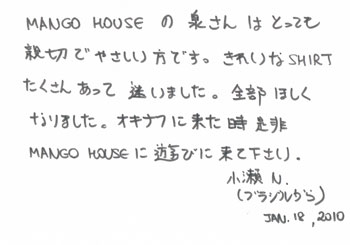 MANGO HOUSE の 泉さん は とっても
親切で やさしい 方です。 きれいなSHIRT
たくさん あって 迷いました。全部 ほしく
なりました。オキナワに来た 時 是非
MANGO HOUSEに 遊びに 来て下さい.
小瀬 N.
(ブラジルから)
JAN. 18, 2010